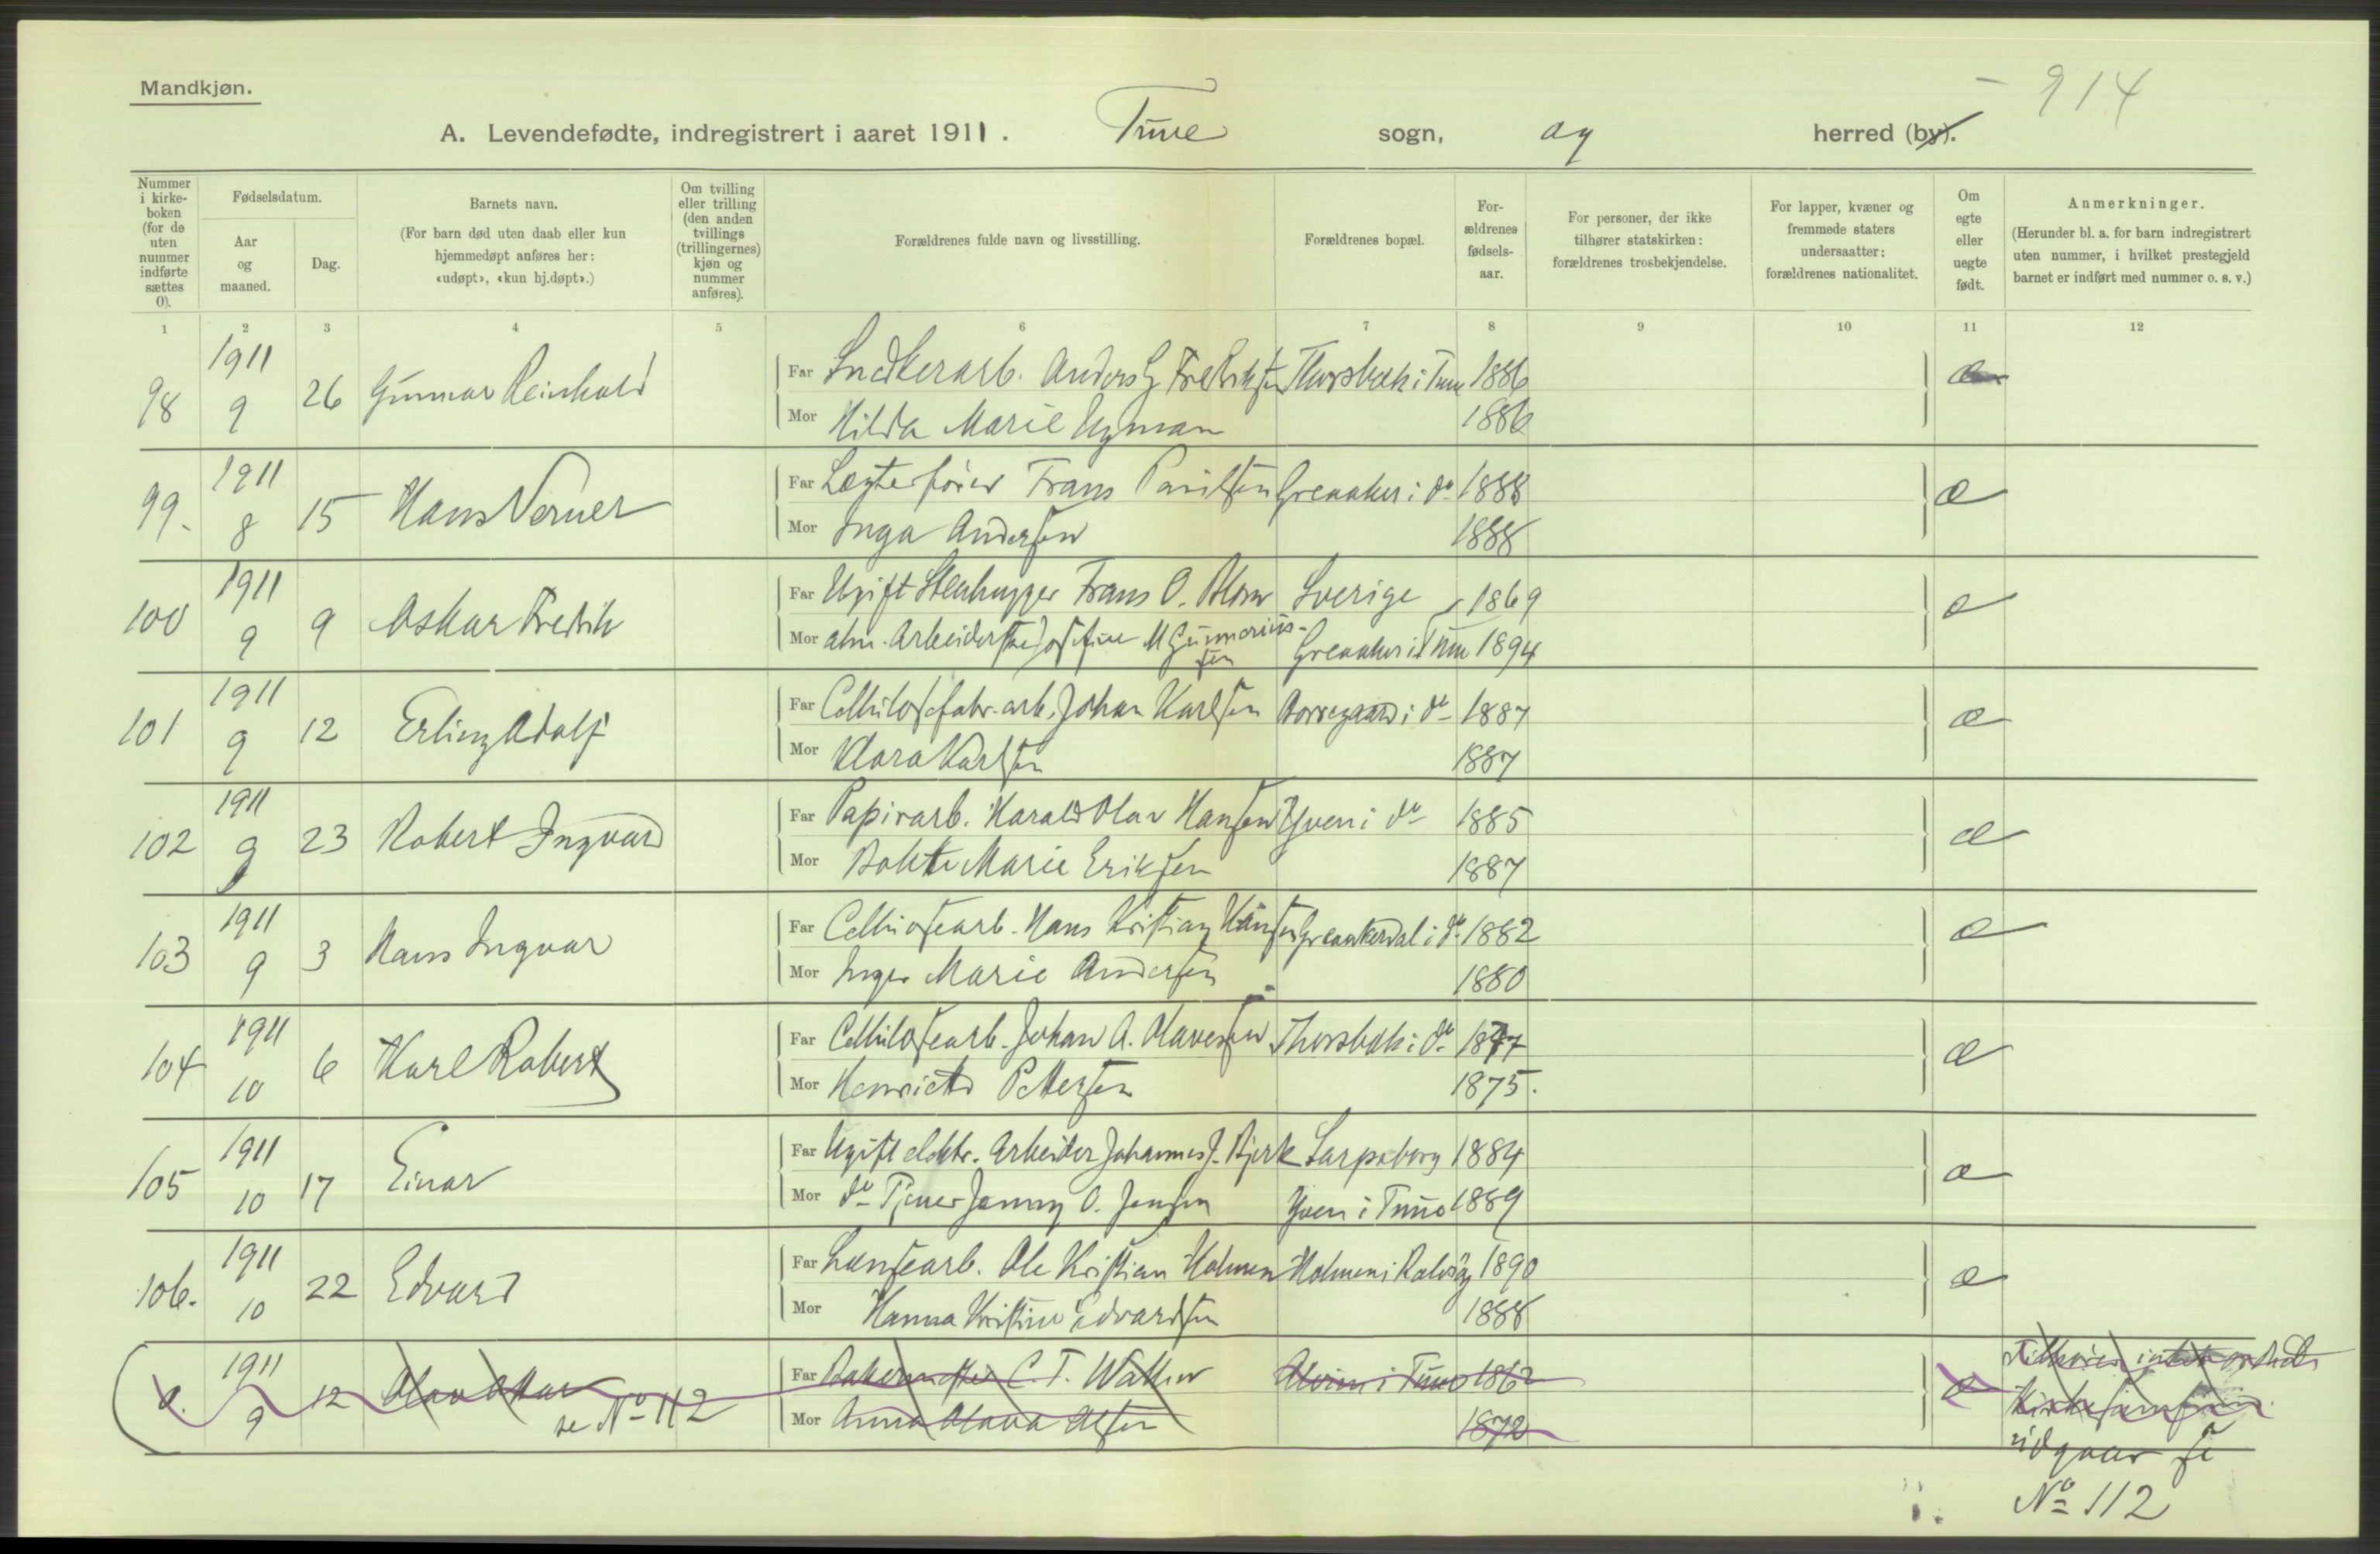 Mandkjøn.
- 914
A. Levendefødte, indregistrert i aaret 1911. Tune sogn, og herred (by).
Nummer i kirke-boken (for de uten nummer indførte sættes 0).
Fødselsdatum.
Aar og maaned.
Dag.
Barnets navn.
(For barn død uten daab eller kun hjemmedøpt anføres her: «udøpt», «kun hj.døpt».)
Om tvilling eller trilling (den anden tvillings (trillingernes) kjøn og nummer anføres).
Forældrenes fulde navn og livsstilling.
Forældrenes bopæl.
For-ældrenes fødsels-aar.
For personer, der ikke tilhører statskirken: forældrenes trosbekjendelse.
For lapper, kvæner og fremmede staters undersaatter: forældrenes nationalitet.
Om egte eller uegte født.
Anmerkninger.
(Herunder bl. a. for barn indregistrert uten nummer, i hvilket prestegjeld barnet er indført med nummer o. s. v.)
1 2 3 4 5 6 7 8 9 10 11 12
98 1911 9 26 Gunnar Reinhold
Far Anders G Fredriksen Thorsbæk i Tune 1886
Mor Hilda Marie Nyman 1886
99. 1911 8 15 Hans Verner
Far Lægterfører Frans Paulsen Greaaker i do 1888 æ
Mor Inga Andersen 1888
100 1911 9 9 Oskar Fredrik
Far Ugift Stenhugger Frans O. Blom Sverige 1869 æ
Mor alm. Arbeiderske Josefine M Gunnerius-
sen Greaaker i Tune 1894
101 1911 9 12 Erling Adolf
Far Cellulosefabr. arb. Johan Karlsen Borregaard i do 1887 æ
Mor Klara Karlsen 1887
102 1911 9 23 Robert Ingvard
Far Papirarb. Harald Olav Hansen Yven i do 1885 æ
Mor Marie Eriksen 1887
103 1911 9 3 Hans Ingvar
Far Cellulosearb. Hans Kristian Hansen Greaakerdal i do 1882 æ
Mor Inger Marie Andersen 1880
104 1911 10 6 Karl Robert
Far Cellulosearb. Johan A. Olavessen Thorsbæk i do 1877 æ
Mor Henriette Pettersen 1875.
105 1911 10 17 Einar
Far Ugift elektr. Arbeider Johannes J. Bjerk Sarpsborg 1884 æ
Mor do Tjener Jenny O. Jensen Yven i Tune 1889
106. 1911 10 22 Edvard
Far Lænsearb. Ole Kristian Holmen Holmen i Rolvsøy 1890 æ
Mor Hanna Kristine Edvardsen 1888
0. 1911 9 12 Olav Oskar
se No 112
Far Bakermester C. T. Walther Alvim i Tune 1862 æ
Mor Anna Olava Olsen 1872
Tilhører intet ordnet
Kirkesamfun.
udgaar se
No 112